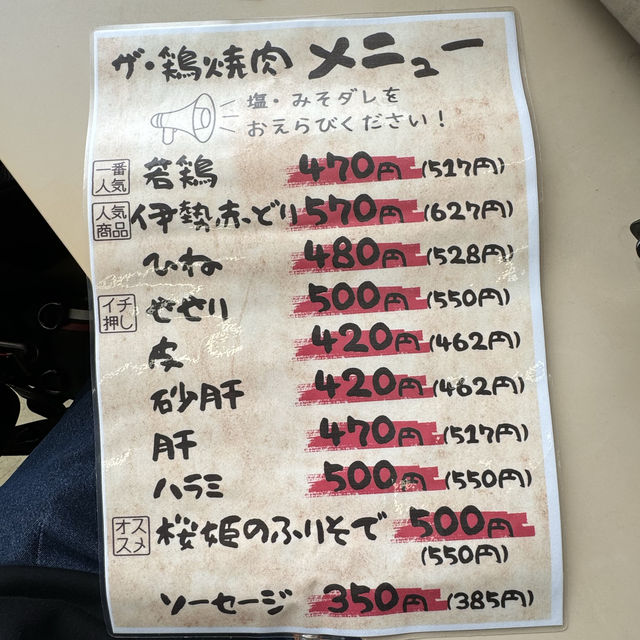 ザ・鶏焼肉 メニュー
塩・みそダレを
おえらびください！
一番人気 若鶏 470円 (517円)
人気商品 伊勢赤どり 570円 (627円)
ひね 480円 (528円)
イチ押し せせり 500円 (550円)
皮 420円 (462円)
砂肝 420円 (462円)
肝 470円 (517円)
ハラミ 500円 (550円)
オススメ 桜姫のふりそで 500円
(550円)
ソーセージ 350円 (385円)